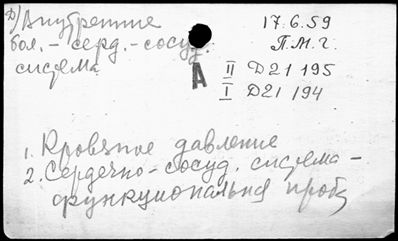 д) Внутренние
бол. - серд. - сосуд.
система
17.6.59
П.М.Г.
А
II Д21 195
I Д21 194
1. Кровяное давление
2. Сердечно-сосуд. система -
функциональная проба